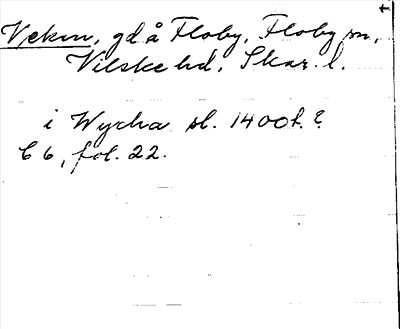 Vekın, gd å Floby, Floby sn,
Vilske hd, Skar. l.
i Wycha sl. 1400t.?
C 6, fol. 22.